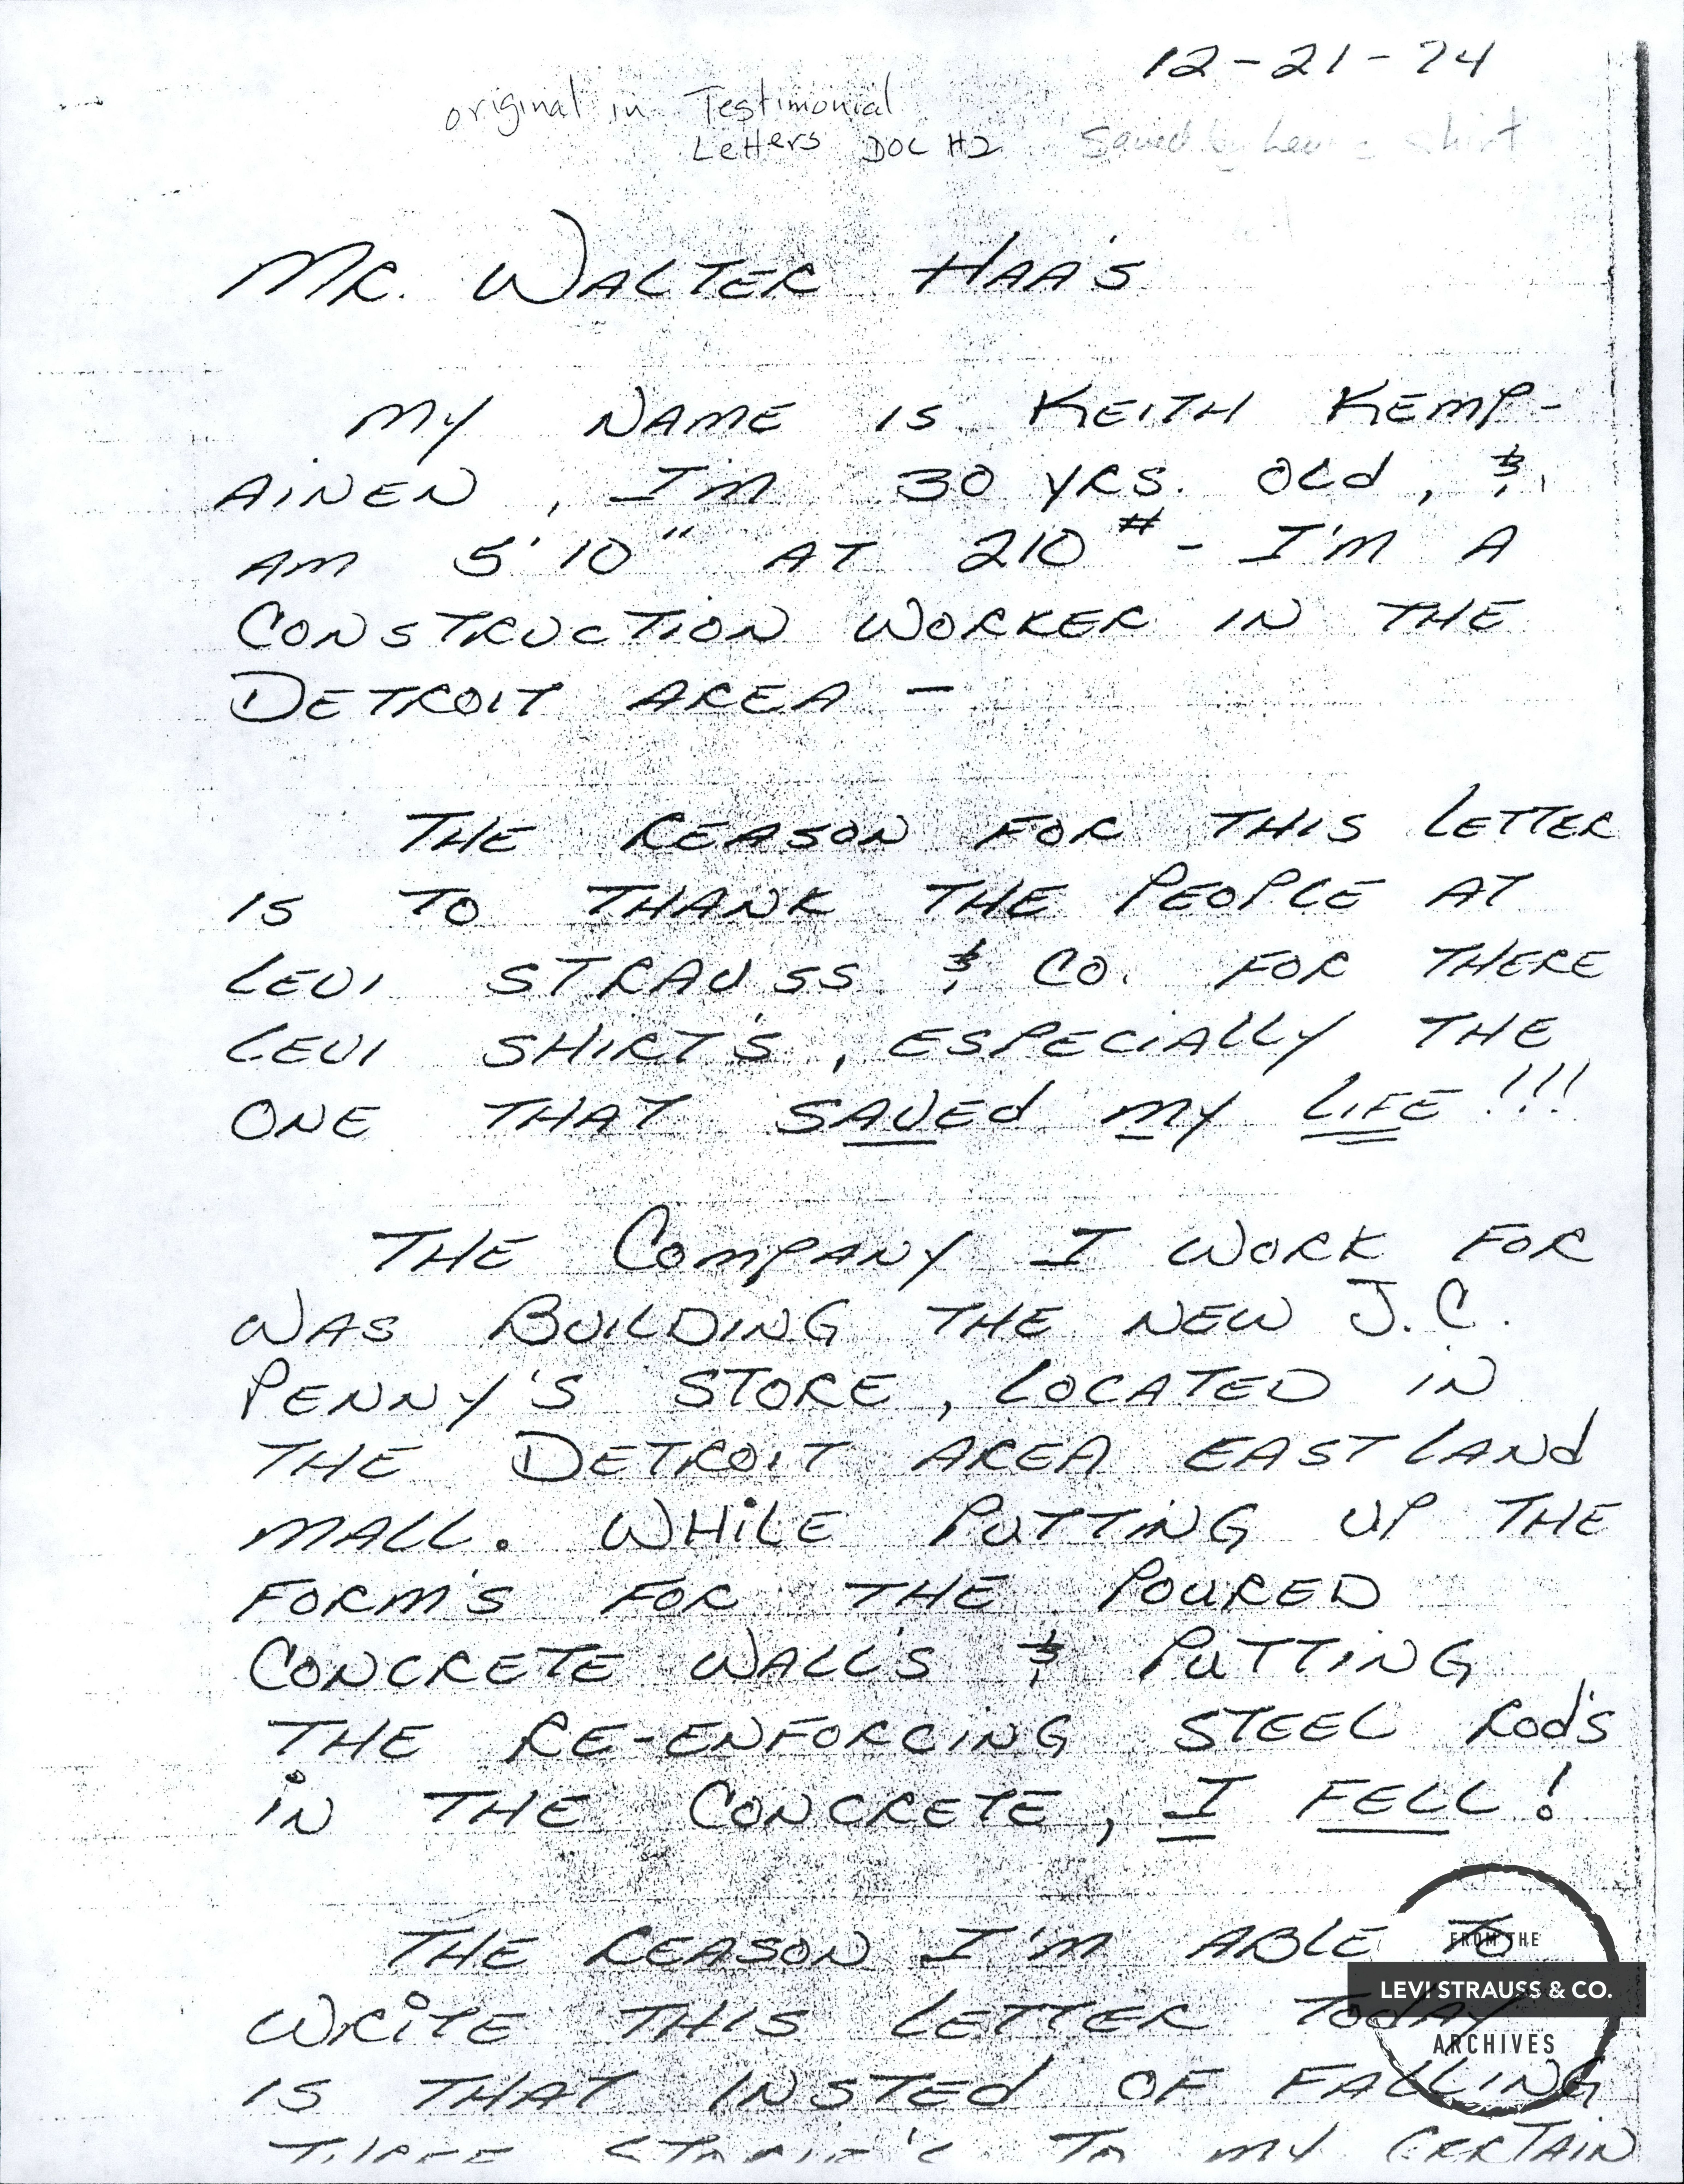 12-21-74
original in Testimonial
Letters DOC #2
Saved by Levi's shirt
MR. WALTER HAA'S
MY NAME IS KEITH KEMP-
AINEN, I'M 30 YRS. OLD, &
AM 5'10" AT 210# - I'M A
CONSTRUCTION WORKER IN THE
DETROIT AREA -
THE REASON FOR THIS LETTER
IS TO THANK THE PEOPLE AT
LEVI STRAUSS & CO. FOR THERE
LEVI SHIRT'S, ESPECIALLY THE
ONE THAT SAVED MY LIFE!!!
THE COMPANY I WORK FOR
WAS BUILDING THE NEW J.C.
PENNY'S STORE, LOCATED IN
THE DETROIT AREA EASTLAND
MALL. WHILE PUTTING UP THE
FORM'S FOR THE POURED
CONCRETE WALL'S & PUTTING
THE RE-ENFORCING STEEL ROD'S
IN THE CONCRETE, I FELL!
THE REASON I'M ABLE TO
WRITE THIS LETTER TODAY
IS THAT INSTED OF FALLING
THREE STORIE'S TO MY CERTAIN
FROM THE
LEVI STRAUSS & CO.
ARCHIVES